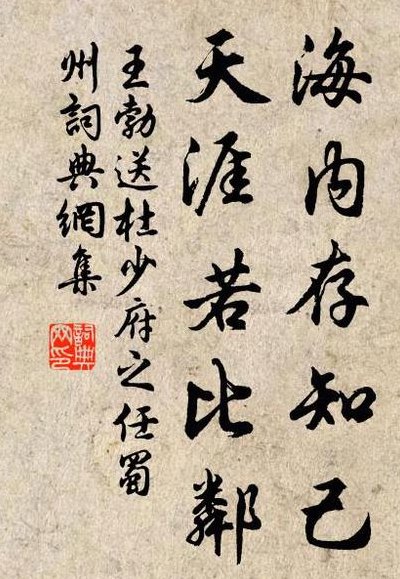 海內存知己
天涯若比鄰
王勃送杜少府之任蜀
州詞典網集
詞典
網印